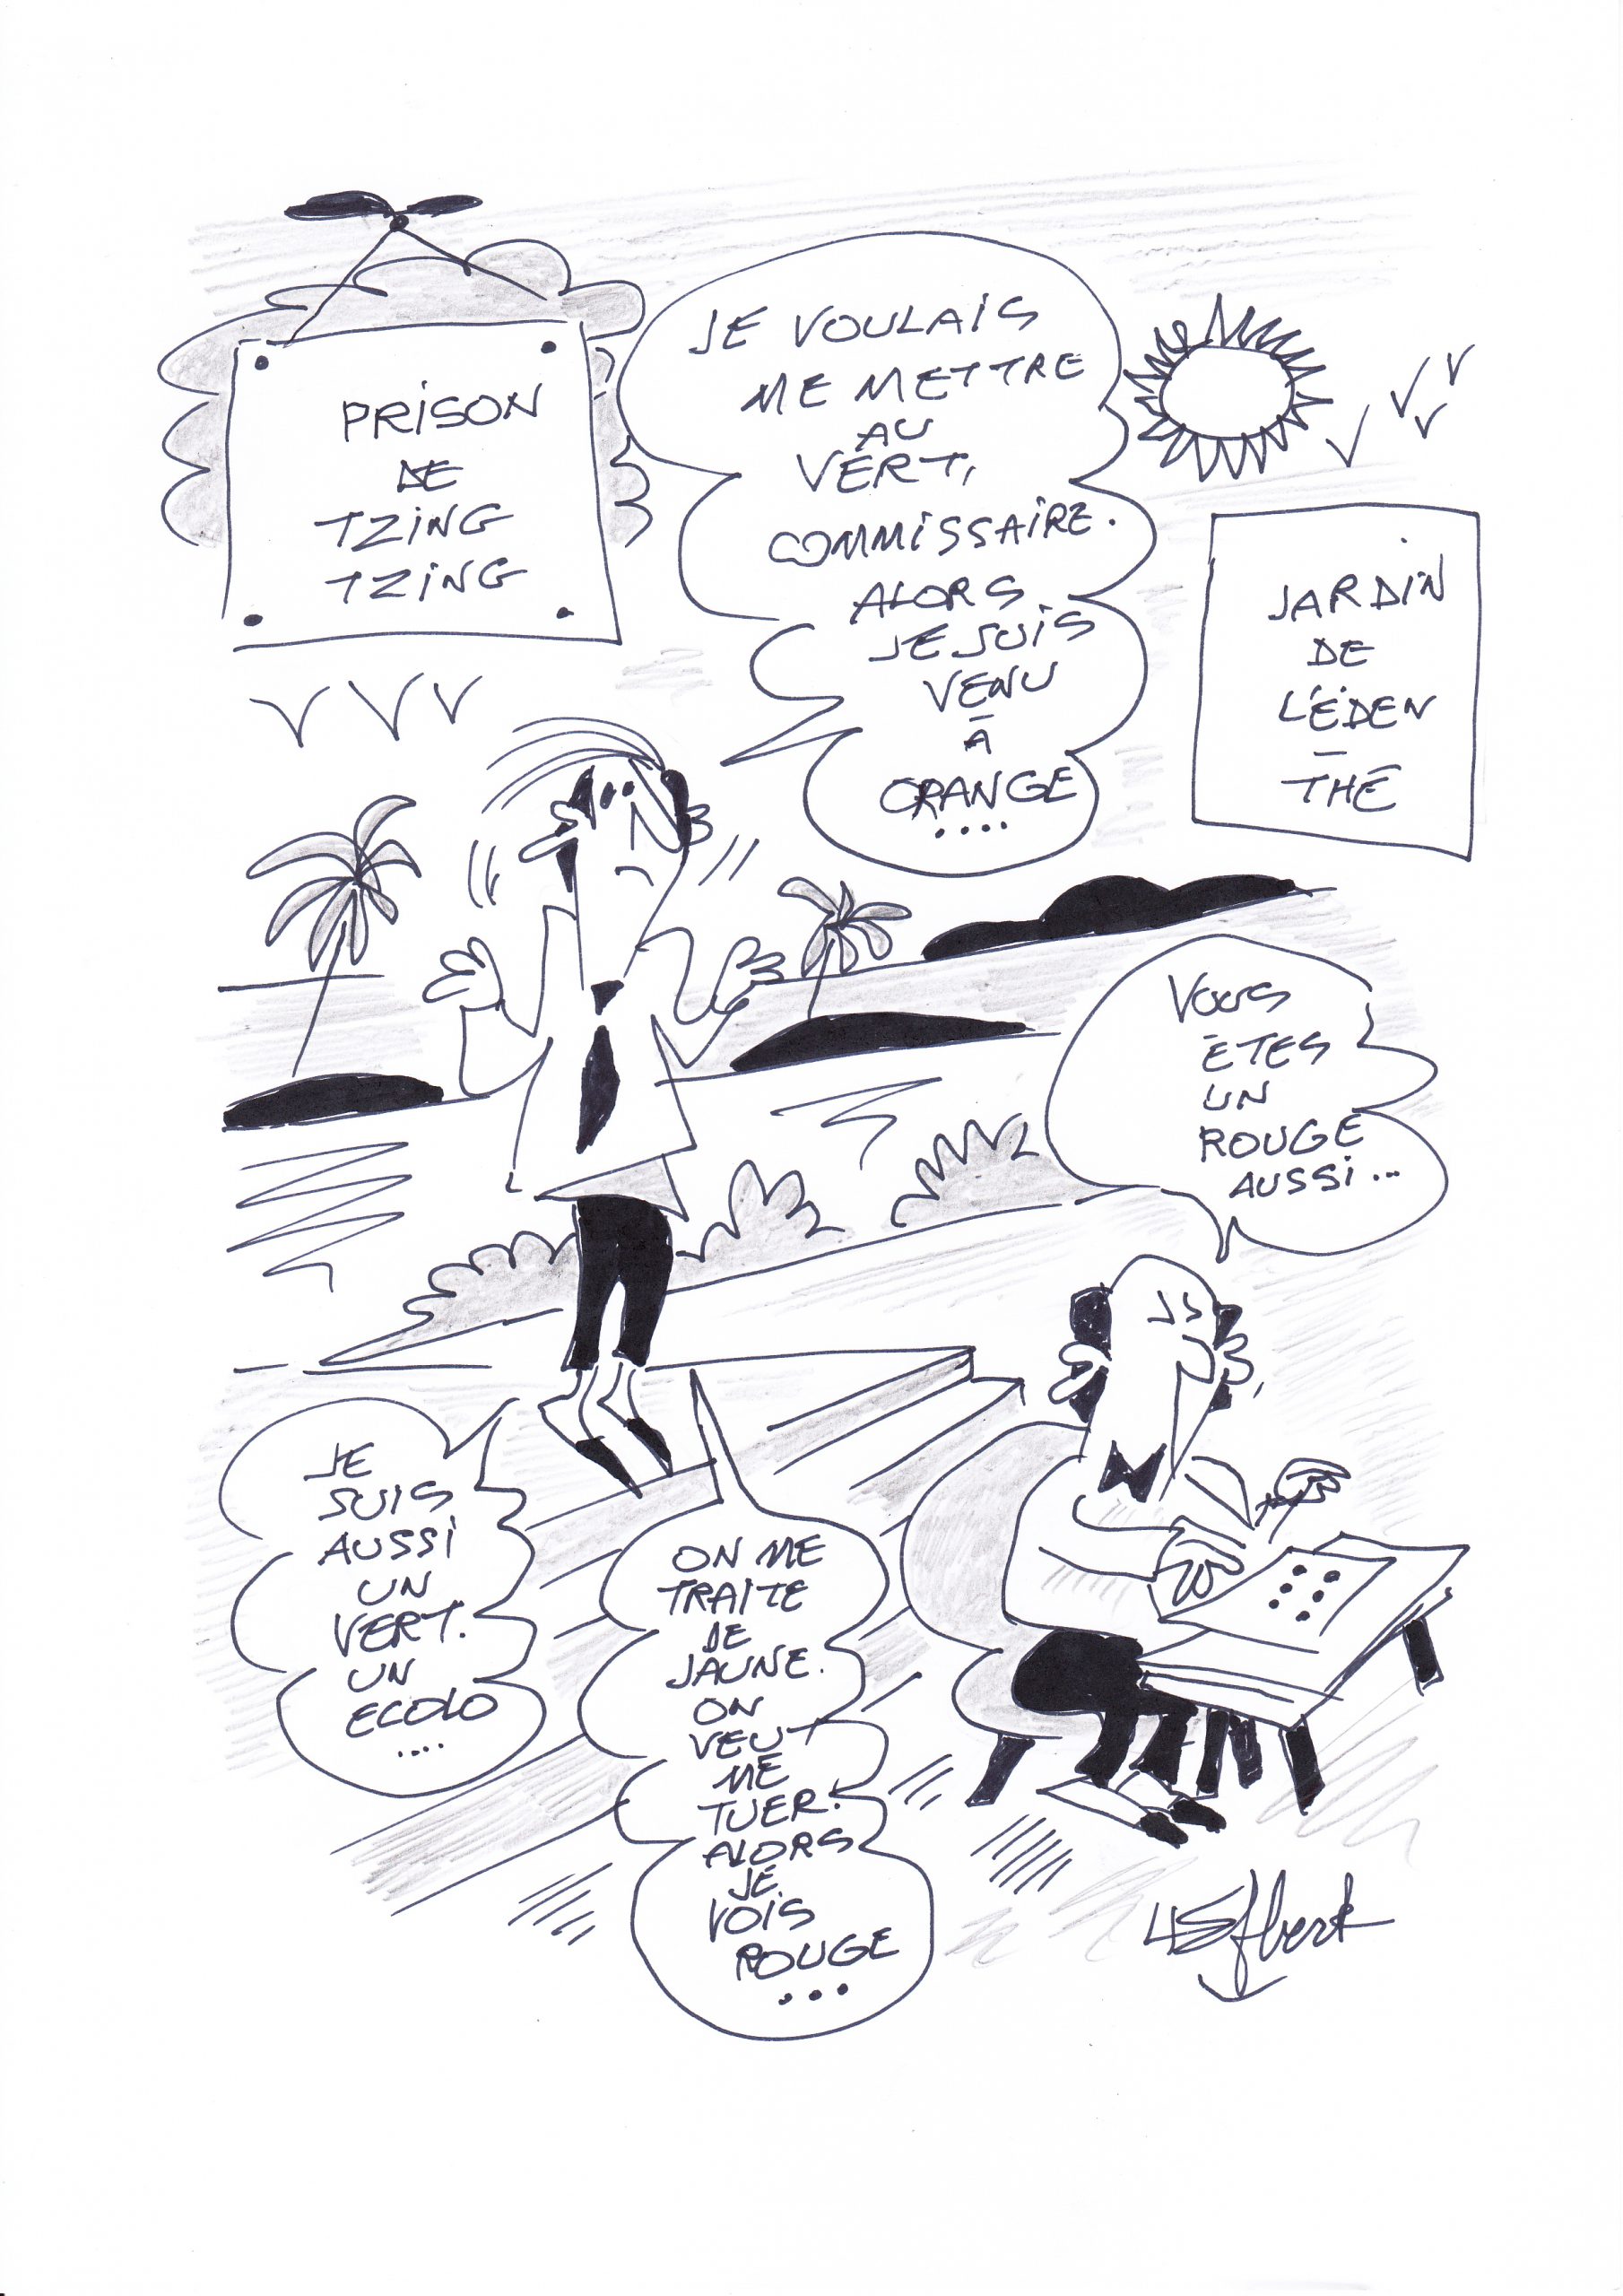 PRISON
DE
TZING
TZING
JE VOULAIS
ME METTRE
AU
VERT,
COMMISSAIRE.
ALORS
JE SUIS
VENU
À
ORANGE
....
JARDIN
DE
L'ÉDEN
—
THÉ
VOUS
ÊTES
UN
ROUGE
AUSSI...
JE
SUIS
AUSSI
UN
VERT.
UN
ECOLO
....
ON ME
TRAITE
DE
JAUNE.
ON
VEUT
ME
TUER.
ALORS
JE
VOIS
ROUGE
...